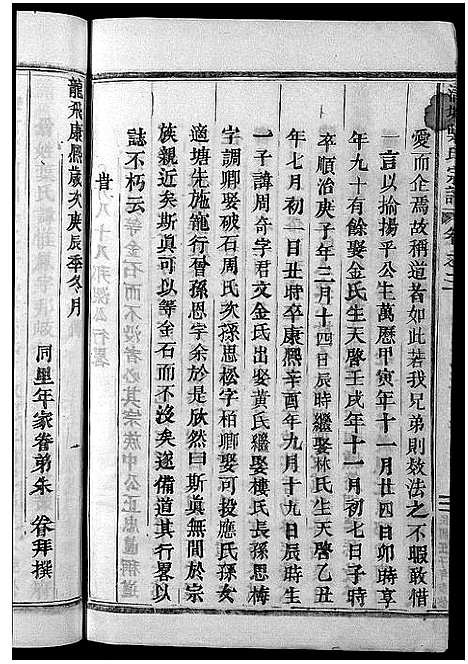 愛而企焉故稱道者如此若我兄弟則效法之不暇敢惜
一言以揄揚平公生萬曆甲寅年十一月廿四日卯時享
年九十有餘娶金氏生天啓壬戌年十一月初七日子時
卒順治庚子年三月十四日辰時繼娶林氏生天啓乙丑
年正月初二日丑時卒康熙辛酉年九月十九日辰時生
一子諱周奇字君文金氏出娶黃氏繼娶樓氏長孫思梅
字調卿娶破石周氏次孫思松字栢卿娶可投應氏孫女
適塘先施寵行晉孫恩字余於是欣然曰斯眞無間於宗
族親近矣斯眞可以等金石而不沒矣遂備道其行畧以
誌不朽云
旹
龍飛康熙歲次庚辰季冬月
同里年家眷弟朱 眷拜撰